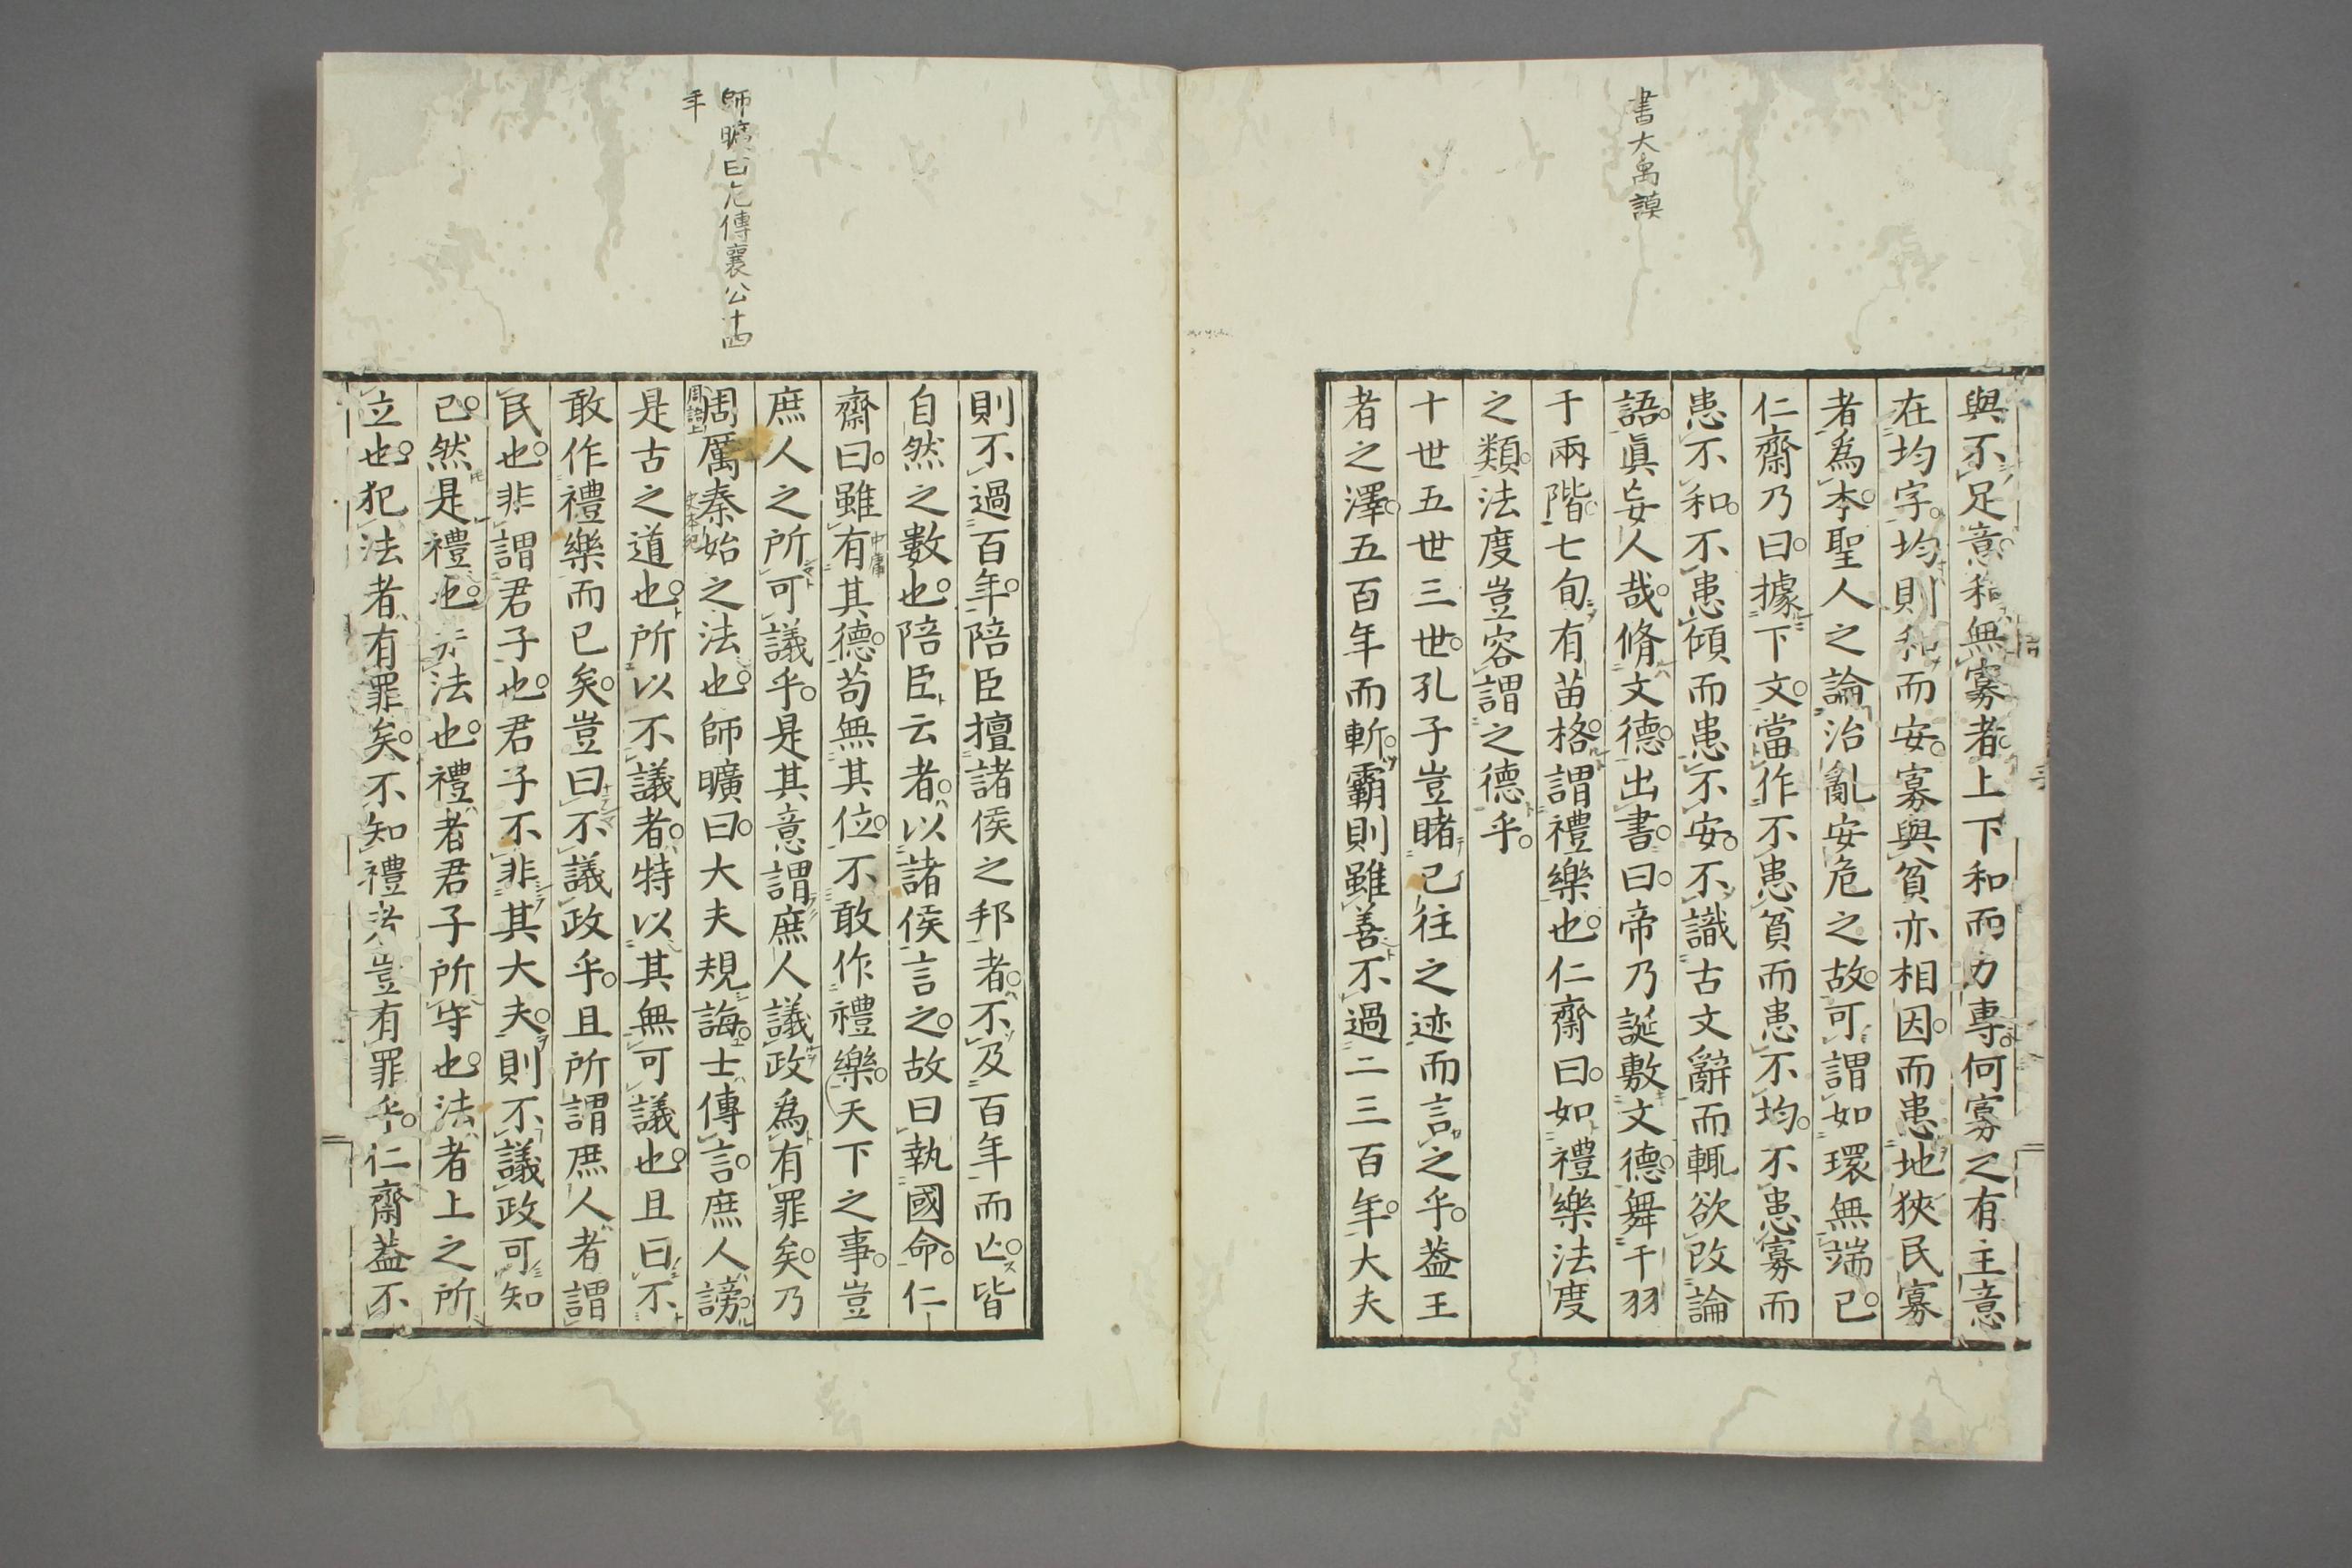 書大禹謨
與不足意和無寡者上下和而力專何寡之有主意
在均字均則和而安寡與貧亦相因而患地狹民寡
者爲本聖人之論治亂安危之故可謂如環無端已
仁齋乃曰據下文當作不患貧而患不均不患寡而
患不和不患傾而患不安不識古文辭而輒欲改論
語眞妄人哉脩文德出書曰帝乃誕敷文德舞干羽
于兩階七旬有苗格謂禮樂也仁齋曰如禮樂法度
之類法度豈容謂之德乎
十世五世三世孔子豈睹已往之迹而言之乎蓋王
者之澤五百年而斬霸則雖善不過二三百年大夫
師曠曰左傳襄公十四
年
則不過百年陪臣擅諸侯之邦者不及百年而亾皆
自然之數也陪臣云者以諸侯言之故曰執國命仁
齋曰雖有其德苟無其位不敢作禮樂天下之事豈
中庸
庶人之所可議乎是其意謂庶人議政爲有罪矣乃
周厲秦始之法也師曠曰大夫規誨士傳言庶人謗
周語上
史本紀
是古之道也所以不議者特以其無可議也且曰不
敢作禮樂而已矣豈曰不議政乎且所謂庶人者謂
民也非謂君子也君子不非其大夫則不議政可知
已然是禮也非法也禮者君子所守也法者上之所
立也犯法者有罪矣不知禮者豈有罪乎仁齋蓋不